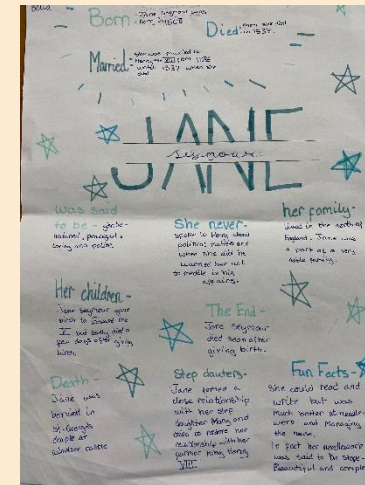 Born:
Jane Seymour was
born in 1508
Died:
in 1537.
Married:
She was married to
Henry VIII from 1536
until 1537 when she
died
JANE
Seymour
was said
to be -
natured, peaceful,
loving and polite.
She never -
spoke to Henry about
political matters and
when she did he
warned her not
to meddle in his
affairs.
her family -
lived in the south of
England. Jane was
a part of a very
noble family.
Her children -
Jane Seymour gave
birth to Edward the
but sadly died a
few days after giving
birth.
The End -
Jane Seymour
died soon after
giving birth.
Death -
Jane was
in
St George's
at
windsor castle
Step dauters -
Jane formed a
close relationship
with her step
daughter Mary and
tried to restore her
relationship with her
father King Henry
VIII
Fun Facts -
She could read and
write but was
much better at needle-
work and Managing
the house.
In fact her needlework
was said to be
Beautiful and